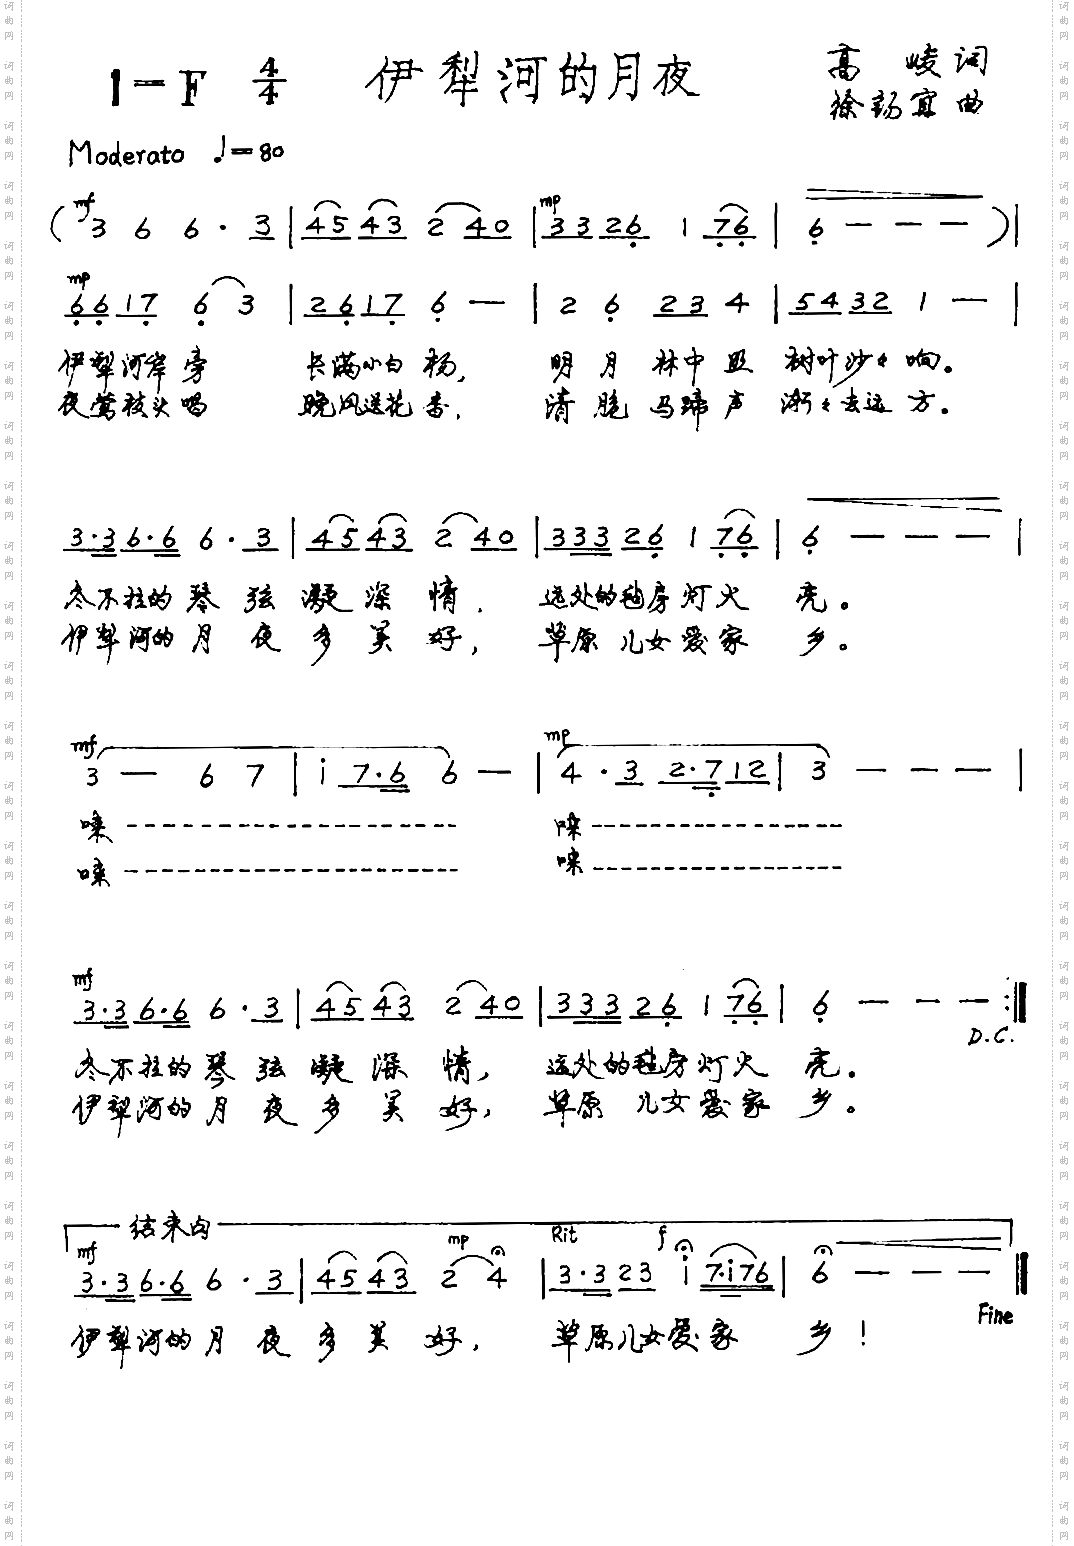 1=F 4/4 伊犁河的月夜 高崚词
徐锡宜曲
Moderato ♩=80
mf mp
( 3 6 6 · 3 | 45 43 2 40 | 33 26 1 76 | 6 — — — ) |
mp
66 17 6 3 | 26 17 6 — | 2 6 23 4 | 54 32 1 — |
伊犁河岸旁 长满小白杨, 明月林中照 树叶沙々响。
夜莺枝头唱 晚风送花香, 清脆马蹄声 渐々去远方。
3·3 6·6 6 · 3 | 45 43 2 40 | 333 26 1 76 | 6 — — — |
冬不拉的琴弦凝深情, 远处的毡房灯火亮。
伊犁河的月夜多美好, 草原儿女爱家乡。
mf mp
3 — 6 7 | i 7·6 6 — | 4 · 3 2·7 12 | 3 — — — |
唻 ------------------ 唻 ------------------
唻 ------------------ 唻 ------------------
mf
3·3 6·6 6 · 3 | 45 43 2 40 | 333 26 1 76 | 6 — — — :||
D.C.
冬不拉的琴弦凝深情, 远处的毡房灯火亮。
伊犁河的月夜多美好, 草原儿女爱家乡。
结束句
mf mp Rit f
3·3 6·6 6 · 3 | 45 43 2 4 | 3·3 23 i 7·i76 | 6 — — — ||
Fine
伊犁河的月夜多美好, 草原儿女爱家乡!
词曲网